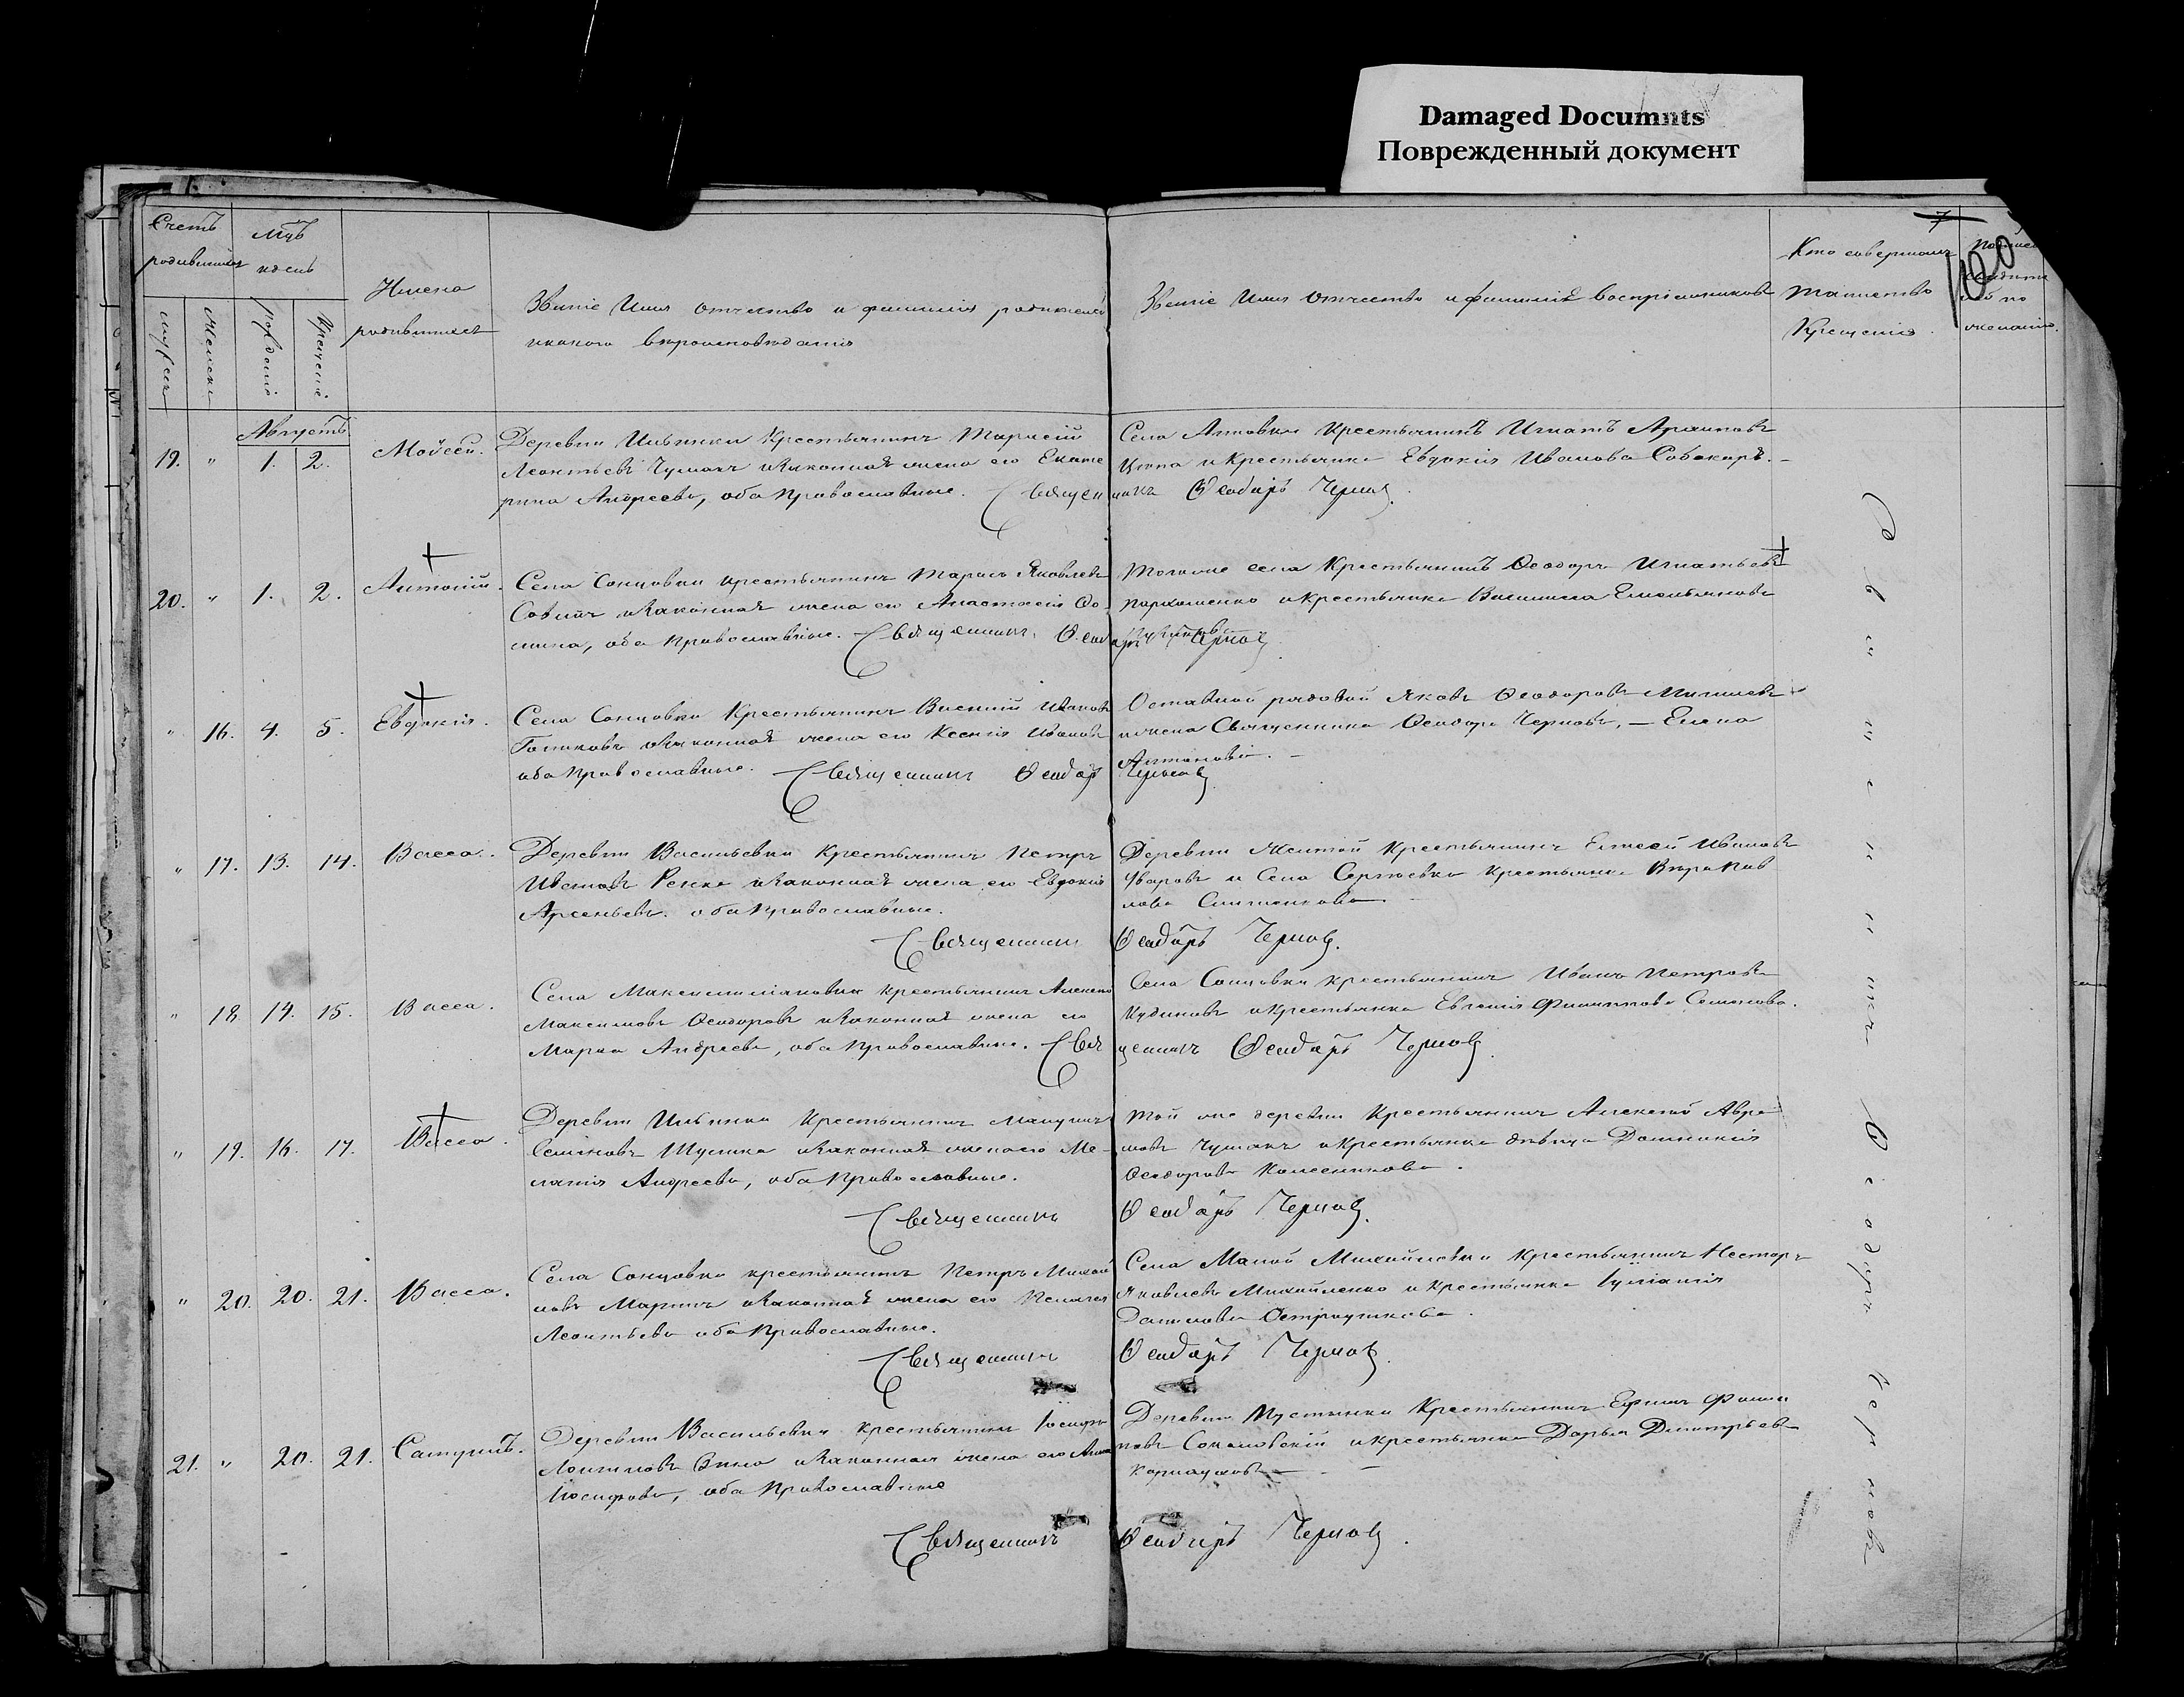 Damaged Documnts
Поврежденный документ
Счетъ родившихся
Мцъ и день
мужск
женска
рожденiя
крещенiя
Имена родившихся
Званiе Имя Отчество и фамилiя родителей
и какого вероисповеданiя
Званiе Имя Отчество и фамилiя воспрiемниковъ
Кто совершалъ
таинство
Крещенiя.
7
100
Августъ
19. " 1. 2. Мойсей.
Деревни Ильинки Крестьянинъ Тарасiй
Леонтьевъ Чумакъ и законная жена его Екате
рина Андреева, оба православные. Священ
Села Крестьянинъ Игнатъ
и Крестьянка Евдокiя Иванова Собакарь. –
никъ Ѳеодоръ Черновъ.
20. " 1. 2. Антонiй.
Села Сонцовки крестьянинъ Тарасъ Яковлевъ
и законная жена его Анастасiя Ѳо-
мина, оба православные. Священникъ Ѳеод
Того же села Крестьянинъ Ѳеодоръ Игнатьевъ
Пархоменко и крестьянка Василиса Емельянова
оръ Черновъ
" 16. 4. 5. Евдокiя.
Села Сонцовки Крестьянинъ Василiй Ивановъ
Голиковъ и законная жена его Ксенiя Иванова
оба православные. Священникъ Ѳеодор
Отставной рядовой Яковъ Ѳеодоровъ
и жена Священника Ѳеодора Чернова, – Елена
Антонова. –
Черновъ
" 17. 13. 14. Васса.
Деревни Васильевки Крестьянинъ Петръ
Ивановъ и законная жена его Евдокiя
Арсеньева. оба православные.
Священникъ
Деревни Желтой Крестьянинъ Елисей Ивановъ
Уваровъ и Села Сергѣевки крестьянка Вѣра Пав
лова
Ѳеодоръ Черновъ.
" 18. 14. 15. Васса.
Села Максимилiановки крестьянинъ Алексей
Максимовъ Ѳеодоровъ и законная жена его
Марiа Андреева, оба православные. Свя
Села Сонцовки крестьянинъ Иванъ Петровъ
Кудиновъ и крестьянка Евгенiя Филиппова Семенова.
щенникъ Ѳеодоръ Черновъ
" 19. 16. 17. Васса.
Деревни Ильинки Крестьянинъ
Семеновъ и законная жена его Ме-
ланiя Андреева, оба православные.
Священникъ
Той же деревни Крестьянинъ Алексѣй Авра
мовъ Чумакъ и крестьянка дѣвица Домникiя
Ѳеодорова Колесникова.
Ѳеодоръ Черновъ.
" 20. 20. 21. Васса.
Села Сонцовки крестьянинъ Петръ Михай
ловъ и законная жена его Пелагея
Леонтьева оба православные.
Священникъ
Села Малой Михайловки Крестьянинъ Несторъ
Яковлевъ Михайленко и крестьянка Iулiанiя
Данилова
Ѳеодоръ Черновъ
21. " 20. 21. Сатурнiнъ.
Деревни Васильевки крестьянинъ Iосифъ
и законная жена его Анна
Iосифова, оба православные
Священникъ
Деревни Пустынки Крестьянинъ Ефимъ Филип
повъ Соколовскiй и крестьянка Дарья Дмитрiева
Ѳеодоръ Черновъ.
Священникъ Ѳеодоръ Черновъ